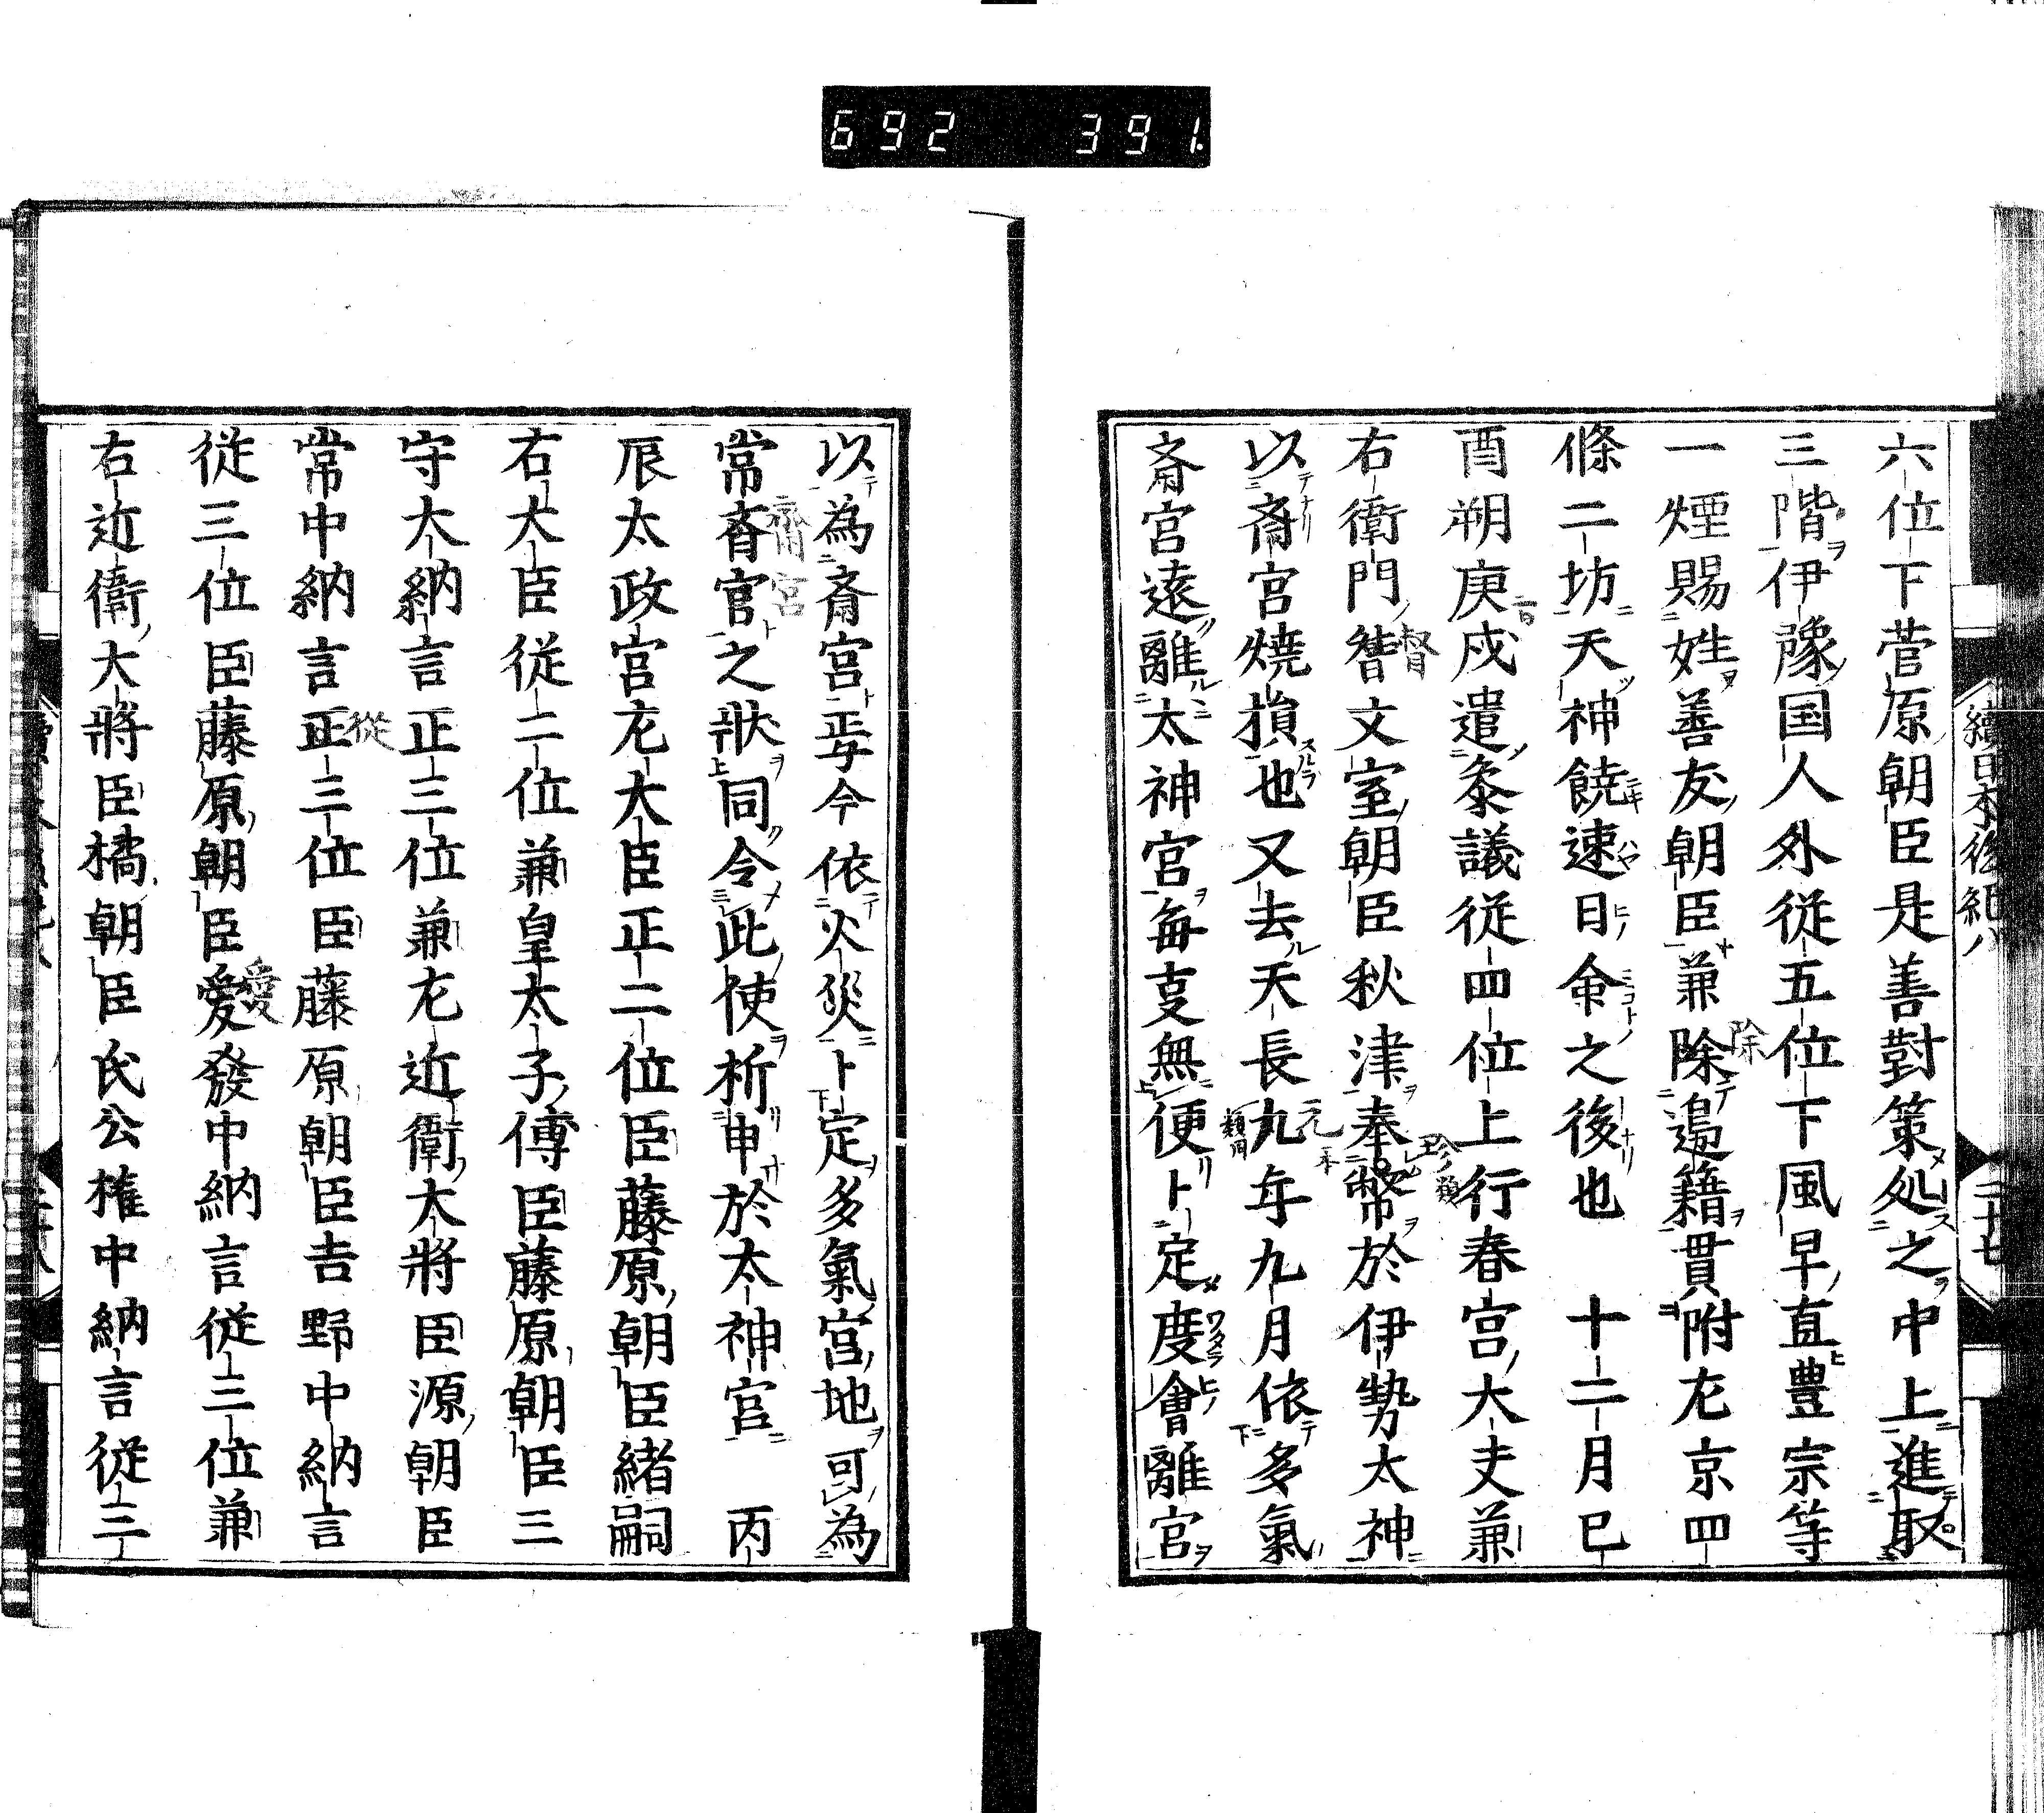 692 391
續日本後紀八
二十七
六位下菅原朝臣是善對策処之中上進取
三階伊豫国人外従五位下風早直豊宗等
一煙賜姓善友朝臣兼除邉籍貫附左京四
除
條二坊天神饒速日命之後也　十二月已
酉朔庚戍遣叅議従四位上行春宮大夫兼
右衛門督文室朝臣秋津奉幣於伊勢太神
督
以斎宮焼損也又去天長九年九月依多氣
斎宮遠離太神宮毎事無便卜定度會離宮
以為斎宮焉今依火災卜定多氣宮地可為
常斎宮之狀同令此使祈申於太神宮　丙
齋宮
辰太政官左大臣正二位臣藤原朝臣緒嗣
右大臣従二位兼皇太子傅臣藤原朝臣三
守大納言正三位兼左近衛大將臣源朝臣
常中納言正三位臣藤原朝臣吉野中納言
從
従三位臣藤原朝臣愛發中納言従三位兼
愛
右近衛大將臣橘朝臣氏公権中納言従三